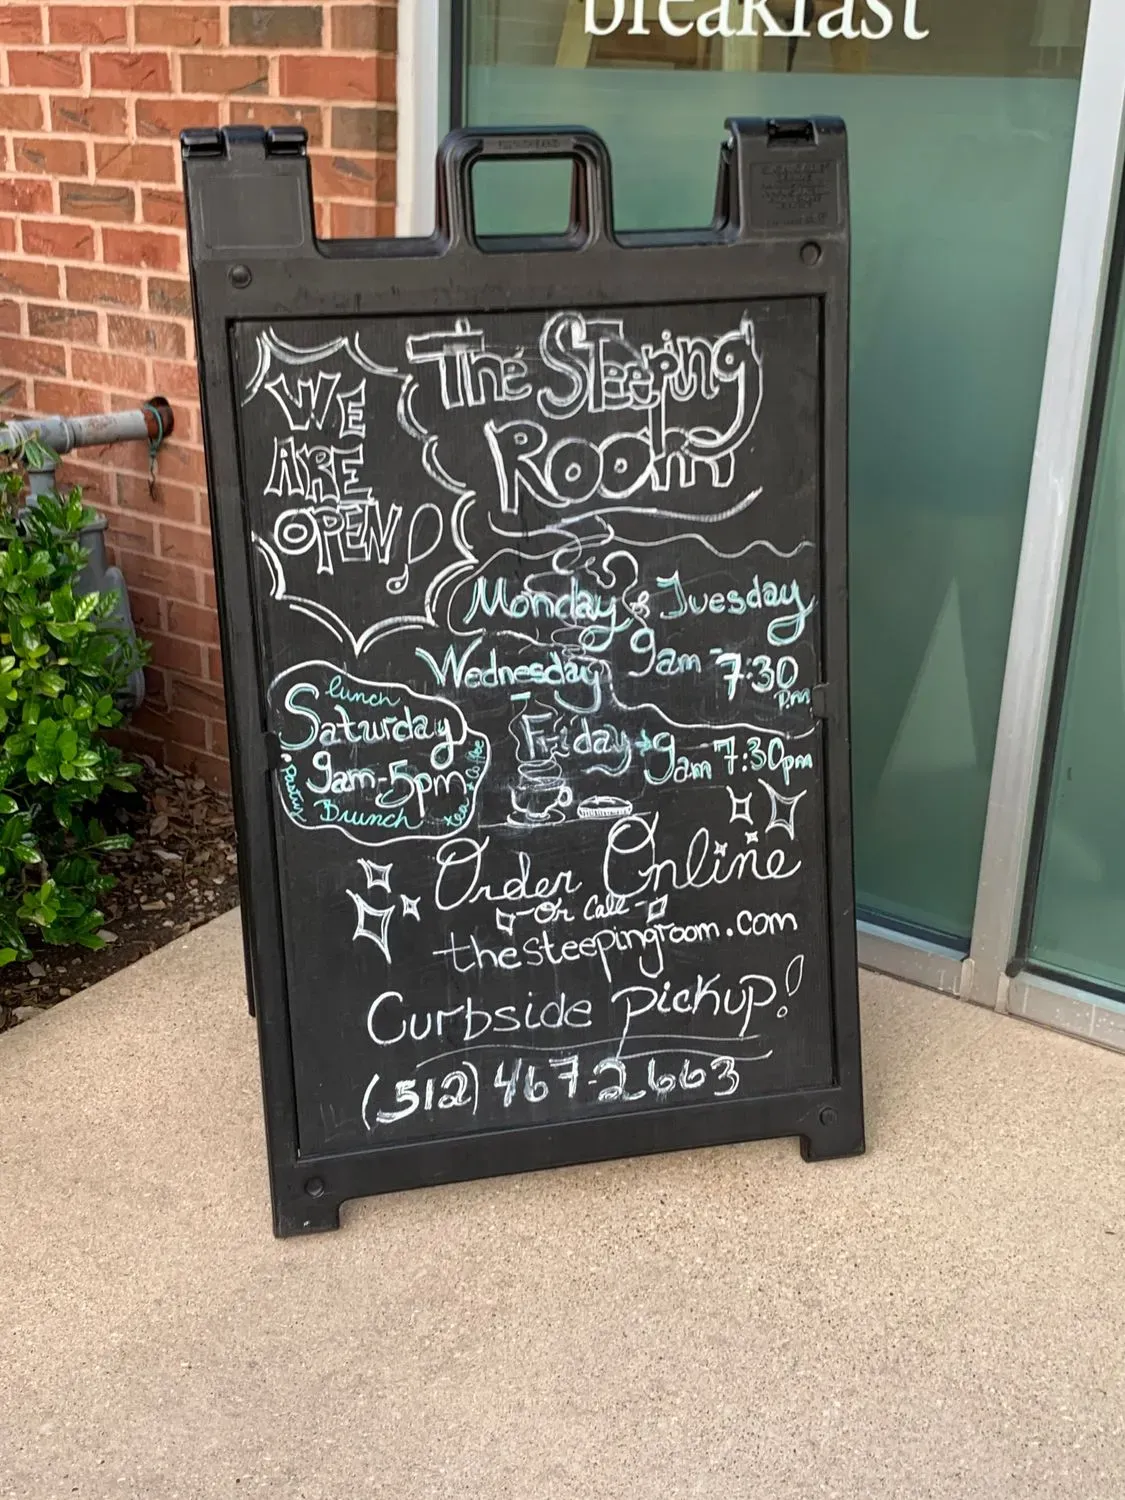 breakfast
WE
ARE
OPEN!
The Steeping
Room
Monday & Tuesday
9am-7:30
p.m
Wednesday -
Friday → 9am 7:30pm
lunch
Saturday
9am-5pm
Pastry
Brunch
tea + coffee
Order Online
-Or Call-
thesteepingroom.com
Curbside pickup!
(512) 467-2663